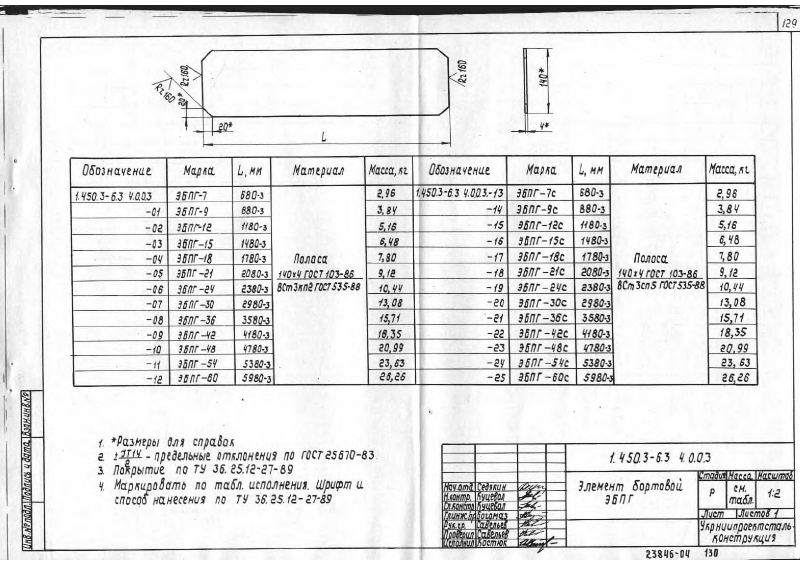 129
Rz160
Rz160
20*
20*
L
Rz160
140*
4*
Обозначение Марка L, мм Материал Масса, кг Обозначение Марка L, мм Материал Масса, кг
1.450.3-6.3 4.0.0.3 ЭБПГ-7 680-3 2,96 1.450.3-6.3 4.0.0.3.-13 ЭБПГ-7с 680-3 2,96
-01 ЭБПГ-9 880-3 3,84 -14 ЭБПГ-9с 880-3 3,84
-02 ЭБПГ-12 1180-3 5,16 -15 ЭБПГ-12с 1180-3 5,16
-03 ЭБПГ-15 1480-3 6,48 -16 ЭБПГ-15с 1480-3 6,48
-04 ЭБПГ-18 1780-3 Полоса 7,80 -17 ЭБПГ-18с 1780-3 Полоса 7,80
-05 ЭБПГ-21 2080-3 140х4 ГОСТ 103-86 9,12 -18 ЭБПГ-21с 2080-3 140х4 ГОСТ 103-86 9,12
-06 ЭБПГ-24 2380-3 ВСт3кп2 ГОСТ 535-88 10,44 -19 ЭБПГ-24с 2380-3 ВСт3сп5 ГОСТ 535-88 10,44
-07 ЭБПГ-30 2980-3 13,08 -20 ЭБПГ-30с 2980-3 13,08
-08 ЭБПГ-36 3580-3 15,71 -21 ЭБПГ-36с 3580-3 15,71
-09 ЭБПГ-42 4180-3 18,35 -22 ЭБПГ-42с 4180-3 18,35
-10 ЭБПГ-48 4780-3 20,99 -23 ЭБПГ-48с 4780-3 20,99
-11 ЭБПГ-54 5380-3 23,63 -24 ЭБПГ-54с 5380-3 23,63
-12 ЭБПГ-60 5980-3 26,26 -25 ЭБПГ-60с 5980-3 26,26
1. *Размеры для справок
2. ± IT14/2 - предельные отклонения по ГОСТ 25670-83
3. Покрытие по ТУ 36.25.12-27-89
4. Маркировать по табл. исполнения. Шрифт и
способ нанесения по ТУ 36.25.12-27-89
Инв.№ подл. Подпись и дата Взам.инв.№
1.450.3-6.3 4.0.0.3
Нач.отд. Седякин
Н.контр. Куцевал
Гл.констр Куцевал
Гл.инж.пр. Богомаз
Рук.гр. Савельев
Проверил Савельев
Исполнил Костюк
Элемент бортовой
ЭБПГ
Стадия Масса Масштаб
Р см. табл. 1:2
Лист Листов 1
Укрниипроектсталь-
конструкция
23846-04 130